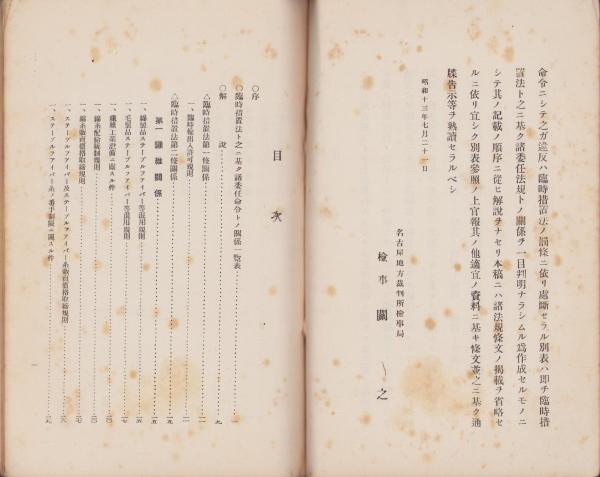 命令ニシテ之ガ違反ハ臨時措置法ノ罰條ニ依リ處斷セラル別表ハ卽チ臨時措
置法ト之ニ基ク諸委任法規トノ關係ヲ一目判明ナラシムル爲作成セルモノニ
シテ其ノ記載ノ順序ニ從ヒ解說ヲナセリ本稿ニハ諸法規條文ノ揭載ヲ省略セ
ルニ依リ宜シク別表參照ノ上官報其ノ他適宜ノ資料ニ基キ條文並之ニ基ク通
牒吿示等ヲ熟讀セラルベシ
昭和十三年七月二十一日
名古屋地方裁判所檢事局
檢事 關 之
目次
〇序
〇臨時措置法ト之ニ基ク諸委任命令トノ關係一覽表 一
〇解說 九
△臨時措置法第一條關係
一、臨時輸出入許可規則
△臨時措置法第二條關係
第一 纖維關係
一、綿製品ステープルフアイバー等混用規則
一、毛製品ステープルフアイバー等混用規則
一、纖維工業設備ニ關スル件
一、綿糸配給統制規則
一、綿糸販賣價格取締規則
一、ステープルフアイバー及ステープルフアイバー糸販賣價格取締規則
一、ステープルフアイバー糸ノ番手制限ニ關スル件